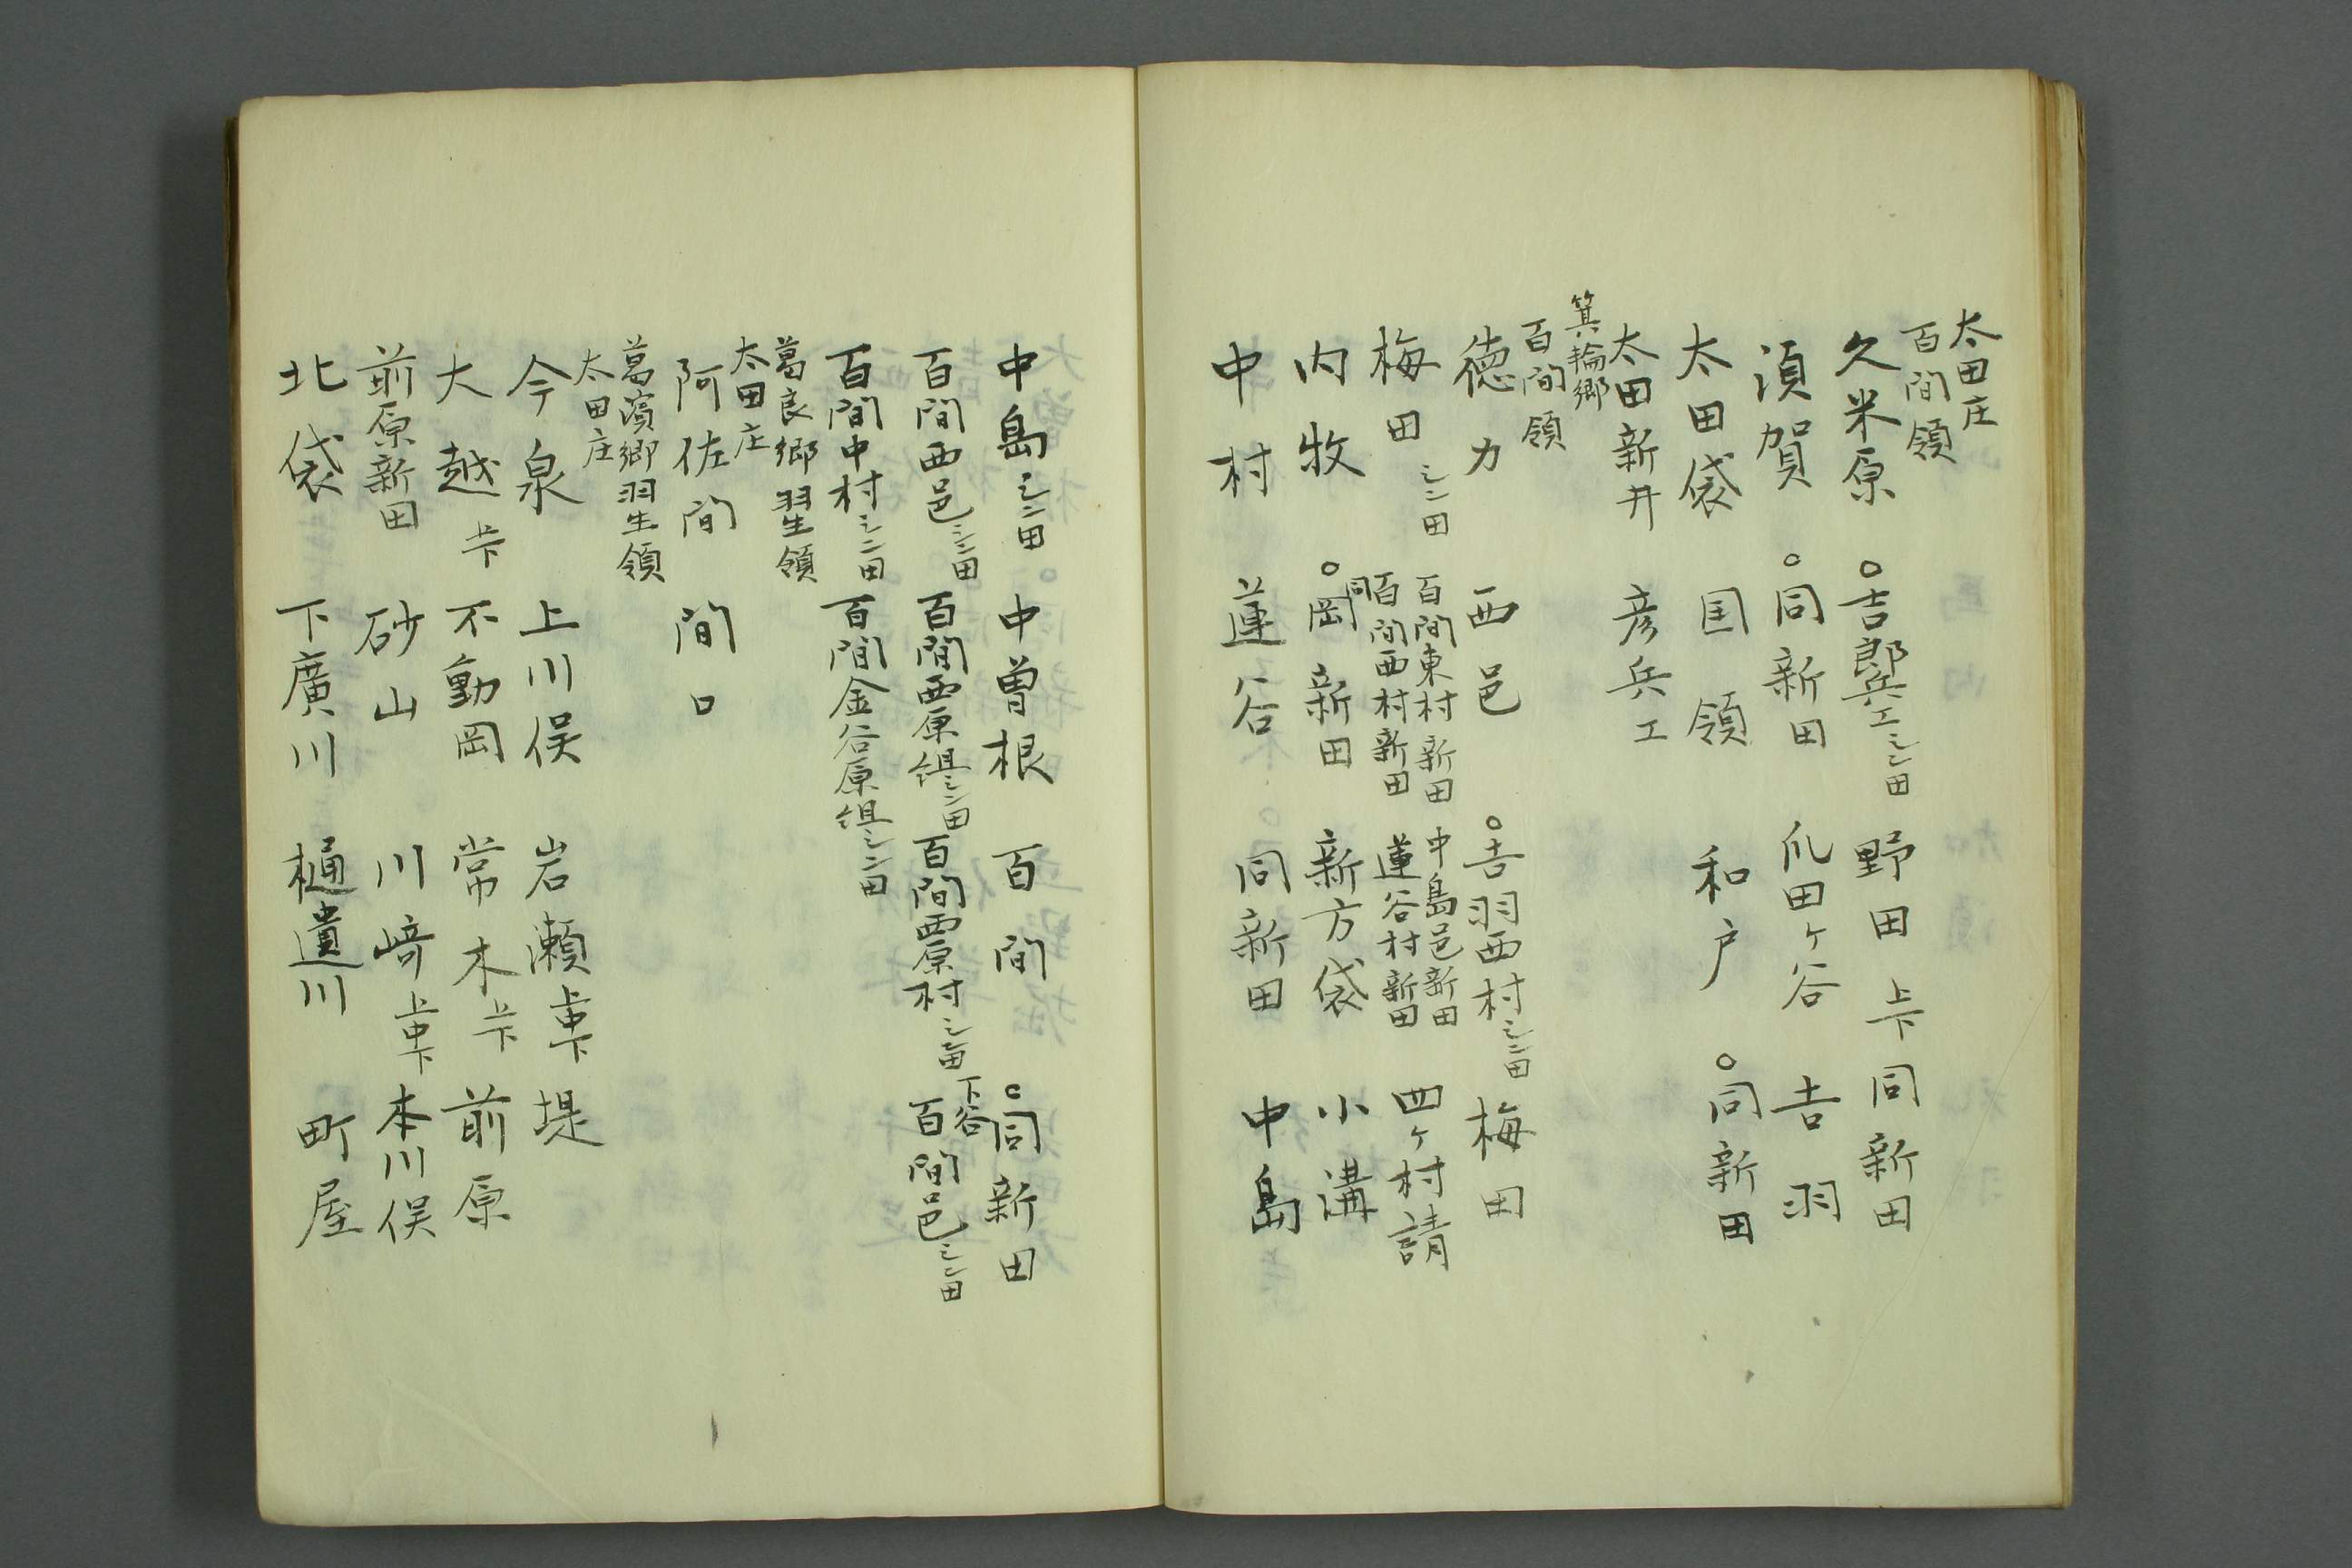 太田庄
百間領
久米原　○吉郎兵エシン田　野田　上下　同新田
須賀　○同新田　爪田ケ谷　吉羽
太田袋　国領　和戸　○同新田
太田新井　彦兵エ
箕輪郷
百間領
徳力　西邑　○吉羽西村シン田　梅田
梅田シン田　百間東村新田　同百間西村新田　中島邑新田　蓮谷村新田　四ケ村請
内牧　○岡新田　新方袋　小溝
中村　蓮谷　同新田　中島
中島シン田　中曽根　百間　○同新田
百間西邑シン田　百間西原組シン田　百間西原村シン田　下谷　百間邑シン田
百間中村シン田　百間金谷原組シン田
葛良郷　羽生領
太田庄
阿佐間　間口
葛濱郷　羽生領
太田庄
今泉　上川俣　岩瀬上中下　堤
大越上下　不動岡　常木上下　前原
前原新田　砂山　川﨑上中下　本川俣
北袋　下廣川　樋遣川　町屋